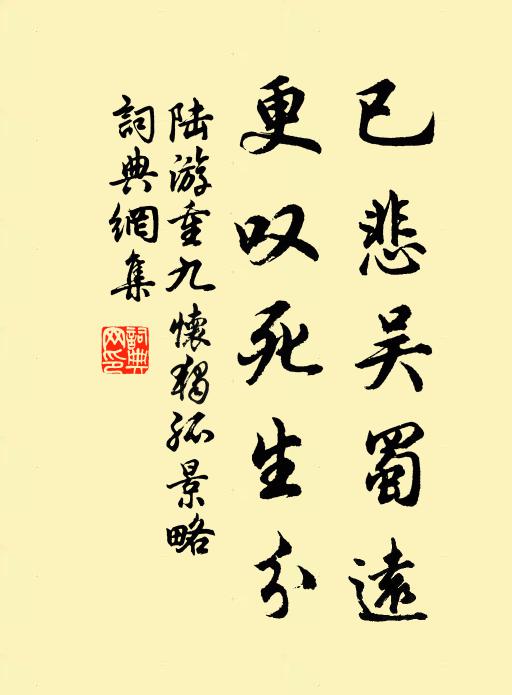 已悲吴蜀遠
更叹死生分
陆游重九懷獨孤景略
詞典網集
詞典網印